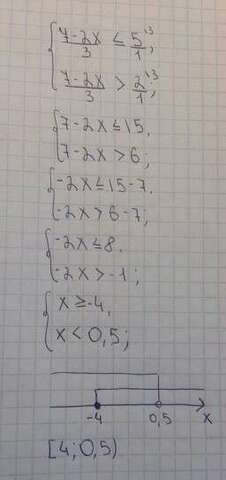 { (7-2x)/3 ≤ 5/1 ^{\3},
{ (7-2x)/3 > 2/1 ^{\3};
{ 7-2x ≤ 15,
{ 7-2x > 6;
{ -2x ≤ 15-7,
{ -2x > 6-7;
{ -2x ≤ 8,
{ -2x > -1;
{ x ≥ -4,
{ x < 0,5;
-4 0,5 x
[4; 0,5)